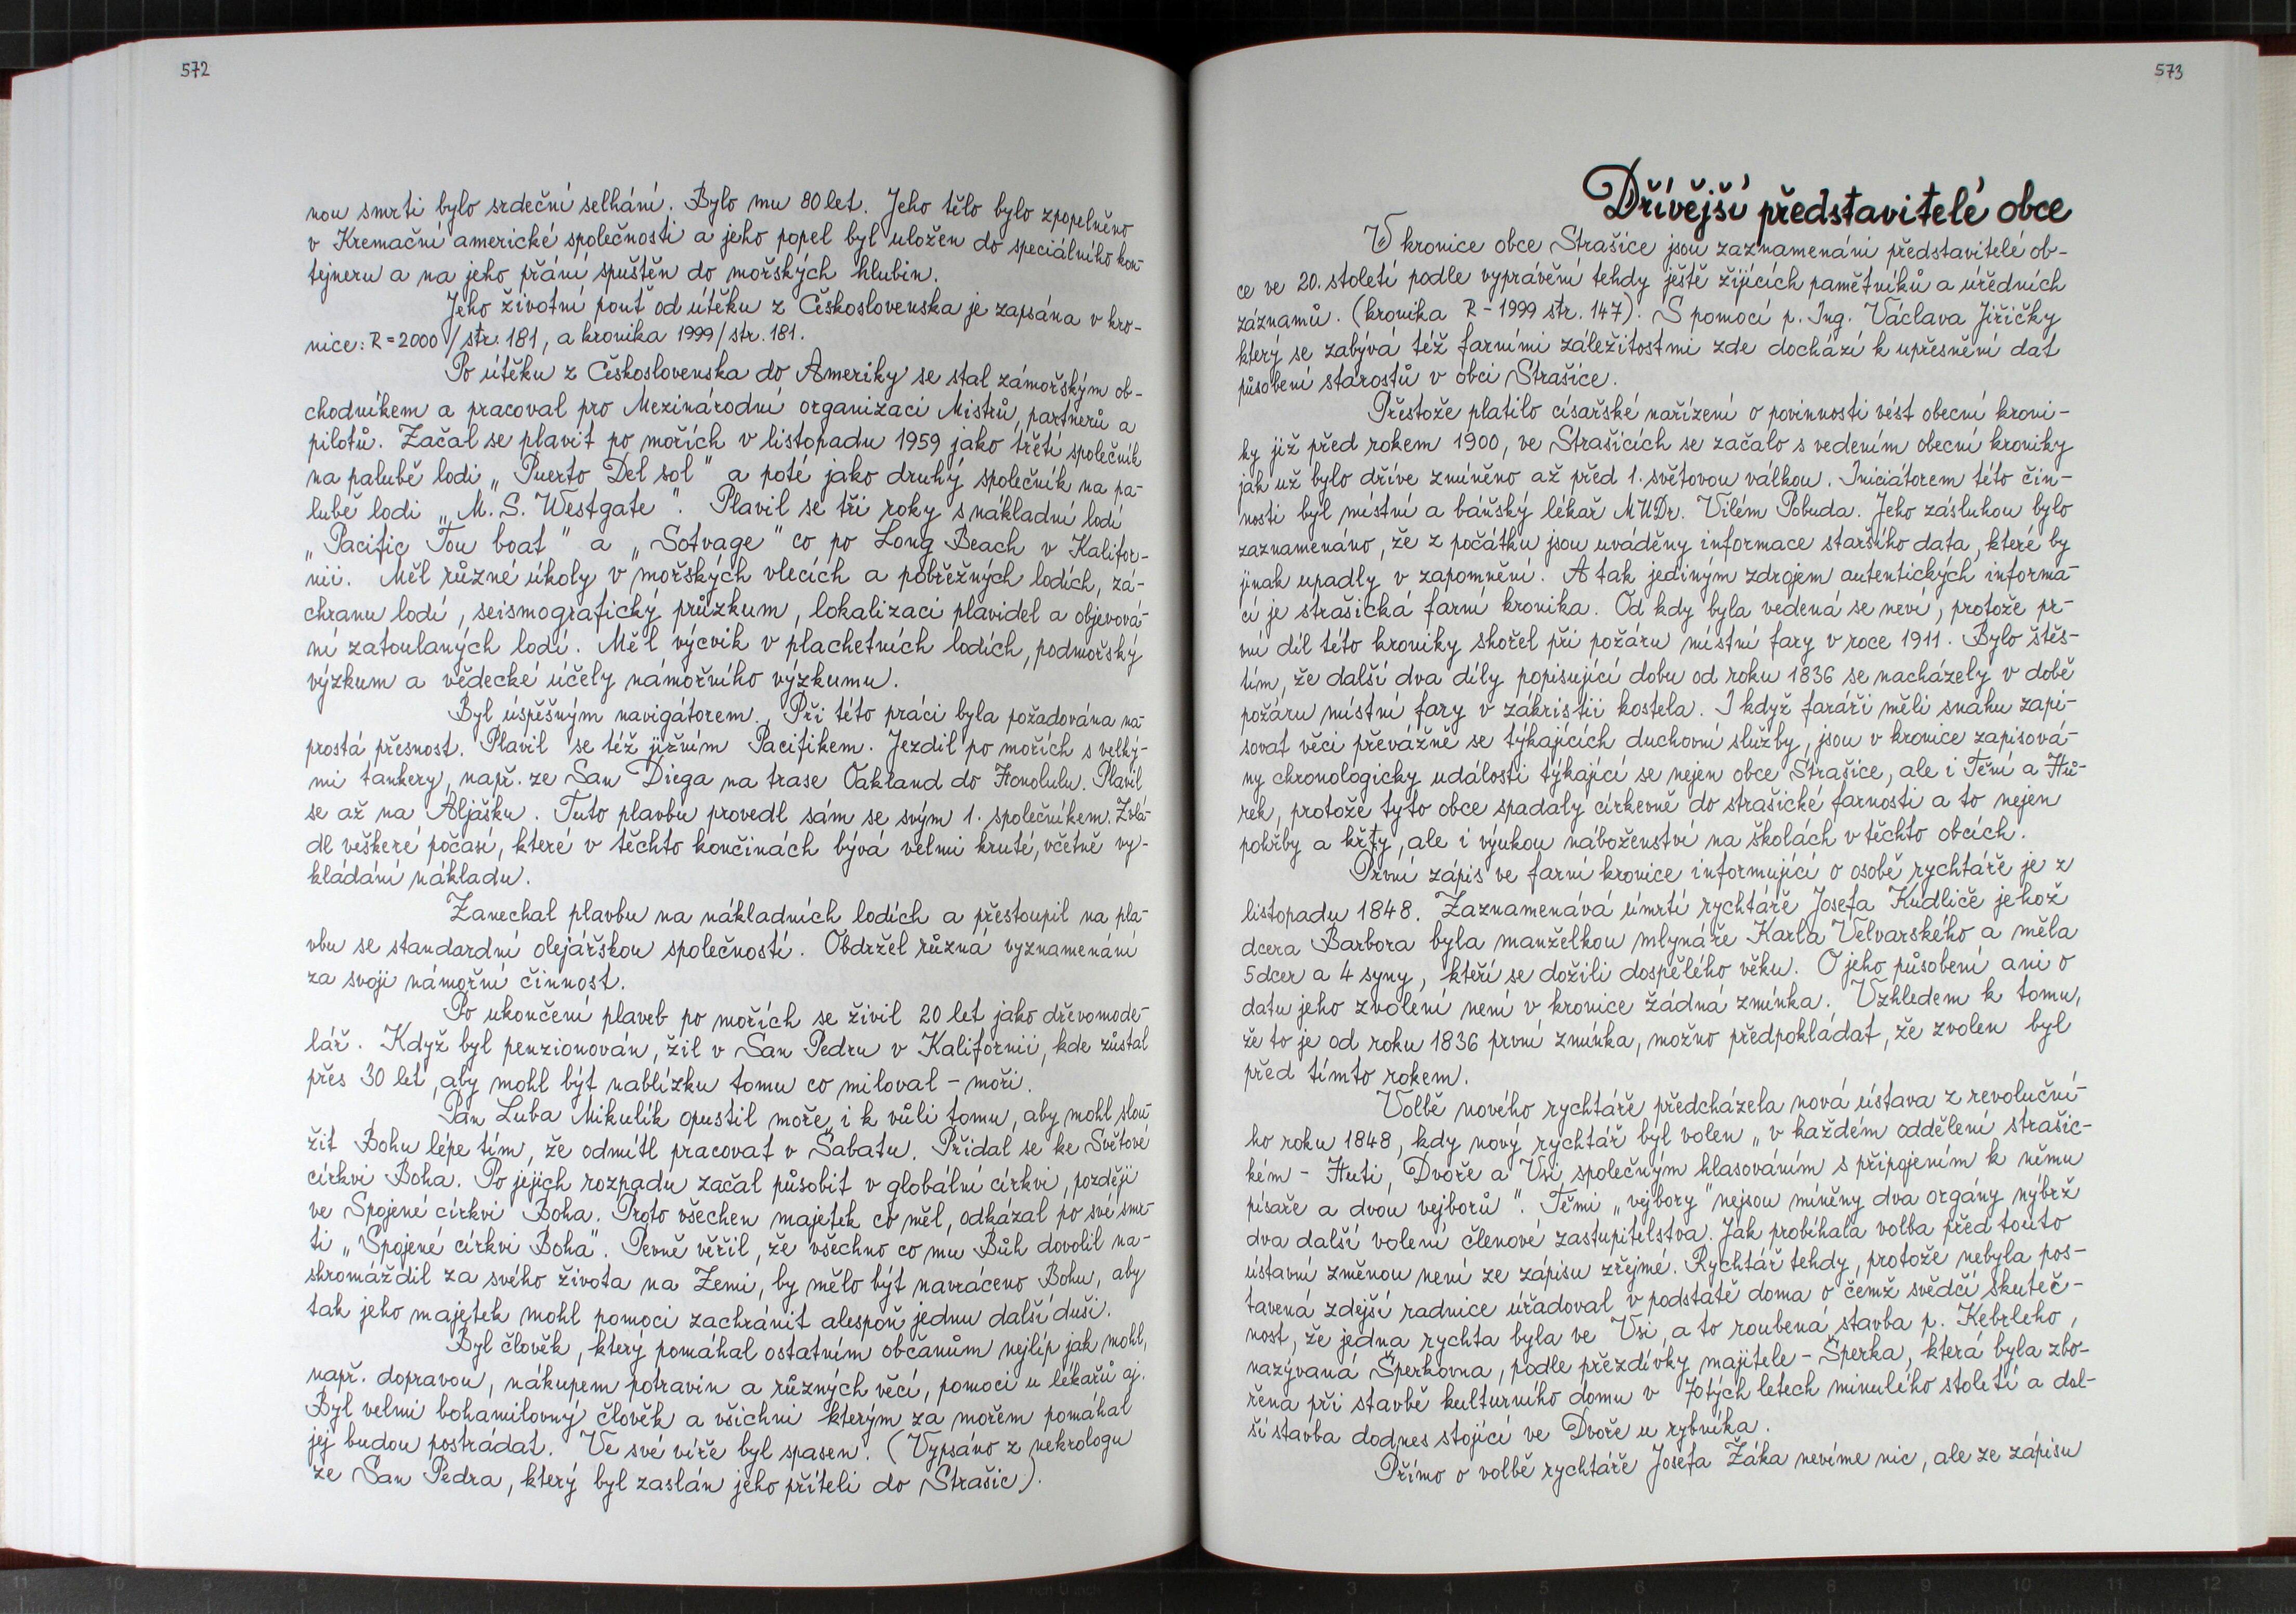 572
nou smrti bylo srdeční selhání. Bylo mu 80 let. Jeho tělo bylo zpopelněno
v Kremační americké společnosti a jeho popel byl uložen do speciálního kon-
tejneru a na jeho přání spuštěn do mořských hlubin.
Jeho životní pouť od útěku z Československa je zapsána v kro-
nice: R=2000/str. 181, a kronika 1999/str. 181.
Po útěku z Československa do Ameriky se stal zámořským ob-
chodníkem a pracoval pro Mezinárodní organizaci Mistrů, partnerů a
pilotů. Začal se plavit po mořích v listopadu 1959 jako třetí společník
na palubě lodi „Puerto Del sol" a poté jako druhý společník na pa-
lubě lodi „M. S. Westgate". Plavil se tři roky s nákladní lodí
„Pacific Tou boat" a „Sotvage" co po Long Beach v Kalifor-
nii. Měl různé úkoly v mořských vlecích a pobřežných lodích, zá-
chranu lodí, seismografický průzkum, lokalizaci plavidel a objevová-
ní zatoulaných lodí. Měl výcvik v plachetních lodích, podmořský
výzkum a vědecké účely námořního výzkumu.
Byl úspěšným navigátorem. Při této práci byla požadována na-
prostá přesnost. Plavil se též jižním Pacifikem. Jezdil po mořích s velký-
mi tankery, např. ze San Diega na trase Oakland do Honolulu. Plavil
se až na Aljašku. Tuto plavbu provedl sám se svým 1. společníkem. Zvlá-
dl veškeré počasí, které v těchto končinách bývá velmi kruté, včetně vy-
kládání nákladu.
Zanechal plavbu na nákladních lodích a přestoupil na pla-
vbu se standardní olejářskou společností. Obdržel různá vyznamenání
za svoji námořní činnost.
Po ukončení plaveb po mořích se živil 20 let jako dřevomode-
lář. Když byl penzionován, žil v San Pedru v Kalifornii, kde zůstal
přes 30 let, aby mohl být nablízku tomu co miloval - moři.
Pan Luba Mikulík opustil moře i k vůli tomu, aby mohl slou-
žit Bohu lépe tím, že odmítl pracovat v Šabatu. Přidal se ke Světové
církvi Boha. Po jejich rozpadu začal působit v globální církvi, později
ve Spojené církvi Boha. Proto všechen majetek co měl, odkázal po své smr-
ti „Spojené církvi Boha". Pevně věřil, že všechno co mu Bůh dovolil na-
shromáždil za svého života na Zemi, by mělo být navráceno Bohu, aby
tak jeho majetek mohl pomoci zachránit alespoň jednu další duši.
Byl člověk, který pomáhal ostatním občanům nejlíp jak mohl,
např. dopravou, nákupem potravin a různých věcí, pomocí u lékařů aj.
Byl velmi bohamilovný člověk a všichni kterým za mořem pomáhal
jej budou postrádat. Ve své víře byl spasen. (Vypsáno z nekrologu
ze San Pedra, který byl zaslán jeho příteli do Strašic).
573
Dřívější představitelé obce
V kronice obce Strašice jsou zaznamenáni představitelé ob-
ce ve 20. století podle vyprávění tehdy ještě žijících pamětníků a úředních
záznamů. (kronika R-1999 str. 147). S pomocí p. Ing. Václava Jiřičky
který se zabývá též farními záležitostmi zde dochází k upřesnění dat
působení starostů v obci Strašice.
Přestože platilo císařské nařízení o povinnosti vést obecní kroni-
ky již před rokem 1900, ve Strašicích se začalo s vedením obecní kroniky
jak už bylo dříve zmíněno až před 1. světovou válkou. Iniciátorem této čin-
nosti byl místní a báňský lékař MUDr. Vilém Pobuda. Jeho zásluhou bylo
zaznamenáno, že z počátku jsou uváděny informace staršího data, které by
jinak upadly v zapomnění. A tak jediným zdrojem autentických informa-
cí je strašická farní kronika. Od kdy byla vedená se neví, protože pr-
vní díl této kroniky shořel při požáru místní fary v roce 1911. Bylo štěs-
tím, že další dva díly popisující dobu od roku 1836 se nacházely v době
požáru místní fary v zákristii kostela. I když faráři měli snahu zapi-
sovat věci převážně se týkajících duchovní služby, jsou v kronice zapisová-
ny chronologicky události týkající se nejen obce Strašice, ale i Těně a Hů-
rek, protože tyto obce spadaly církevně do strašické farnosti a to nejen
pohřby a křty, ale i výukou náboženství na školách v těchto obcích.
První zápis ve farní kronice informující o osobě rychtáře je z
listopadu 1848. Zaznamenává úmrtí rychtáře Josefa Kudliče jehož
dcera Barbora byla manželkou mlynáře Karla Velvarského a měla
5 dcer a 4 syny, kteří se dožili dospělého věku. O jeho působení ani o
datu jeho zvolení není v kronice žádná zmínka. Vzhledem k tomu,
že to je od roku 1836 první zmínka, možno předpokládat, že zvolen byl
před tímto rokem.
Volbě nového rychtáře předcházela nová ústava z revoluční-
ho roku 1848, kdy nový rychtář byl volen „v každém oddělení strašic-
kém - Huti, Dvoře a Vsi společným hlasováním s připojením k němu
písaře a dvou vejborů". Těmi „vejbory" nejsou míněny dva orgány nýbrž
dva další volení členové zastupitelstva. Jak probíhala volba před touto
ústavní změnou není ze zápisu zřejmé. Rychtář tehdy, protože nebyla pos-
tavená zdejší radnice úřadoval v podstatě doma o čemž svědčí skuteč-
nost, že jedna rychta byla ve Vsi, a to roubená stavba p. Kebrleho,
nazývaná Šperkovna, podle přezdívky majitele - Šperka, která byla zbo-
řena při stavbě kulturního domu v 70tých letech minulého století a dal-
ší stavba dodnes stojící ve Dvoře u rybníka.
Přímo o volbě rychtáře Josefa Žáka nevíme nic, ale ze zápisu